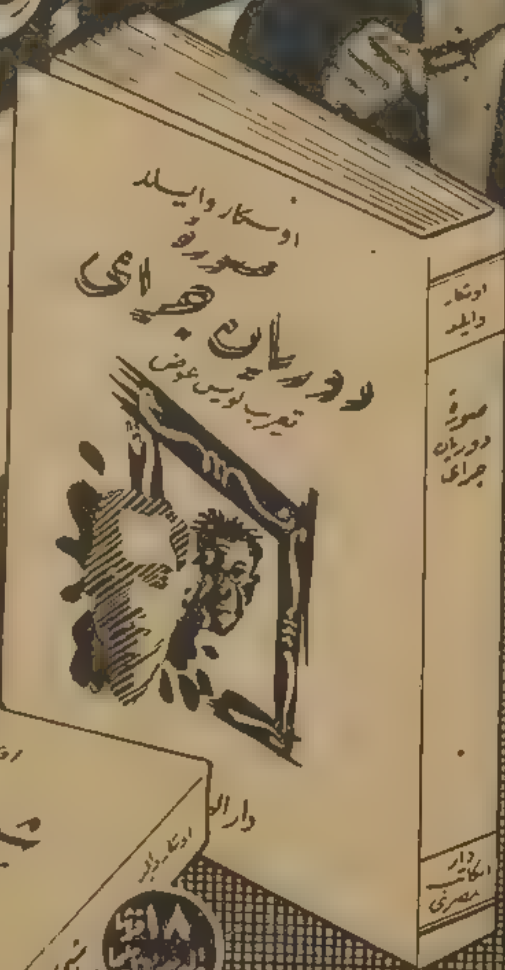 اوسكار وايلد
صورة
دوريان جراى
تعريب لويس عوض
اوسكار
وايلد
صورة
دوريان
جراى
دار
الكاتب
المصرى
اوسكار وايلد
١٨